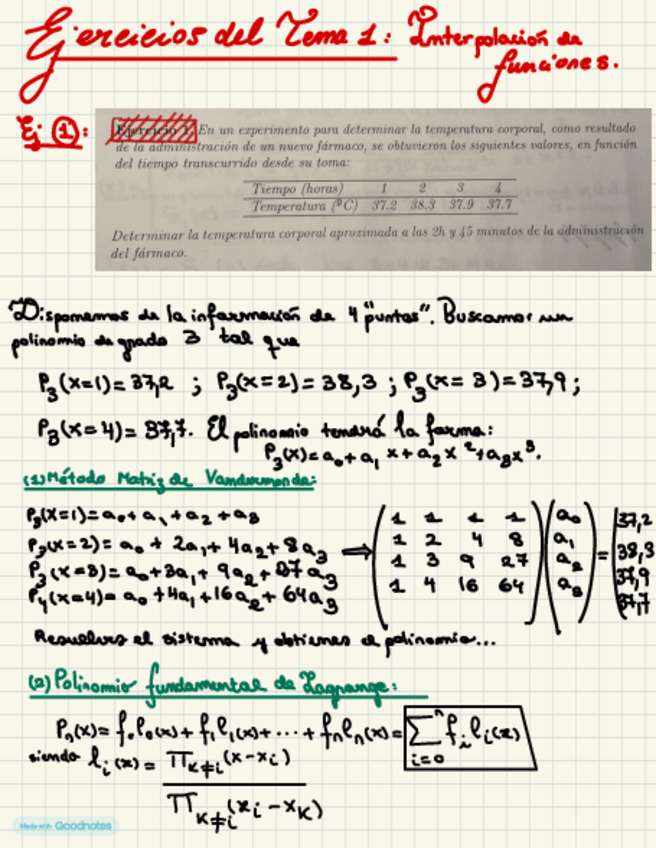 Ejercicios del Tema 1: Interpolación de
funciones.
Ej 1:
Ejercicio 1. En un experimento para determinar la temperatura corporal, como resultado
de la administración de un nuevo fármaco, se obtuvieron los siguientes valores, en función
del tiempo transcurrido desde su toma:
Tiempo (horas) 1 2 3 4
Temperatura (ºC) 37.2 38.3 37.9 37.7
Determinar la temperatura corporal aproximada a las 2h y 45 minutos de la administración
del fármaco.
Disponemos de la información de 4 "puntos". Buscamos un
polinomio de grado 3 tal que
P₃(x=1)=37,2 ; P₃(x=2)=38,3 ; P₃(x=3)=37,9 ;
P₃(x=4)=37,7. El polinomio tendrá la forma:
P₃(x)=a₀+a₁x+a₂x²+a₃x³.
(1) Método Matriz de Vandermonde:
P₃(x=1)=a₀+a₁+a₂+a₃
P₃(x=2)=a₀+2a₁+4a₂+8a₃
P₃(x=3)=a₀+3a₁+9a₂+27a₃
P₄(x=4)=a₀+4a₁+16a₂+64a₃
⟹
1 1 1 1 a₀ 37,2
1 2 4 8 a₁ = 38,3
1 3 9 27 a₂ 37,9
1 4 16 64 a₃ 37,7
Resuelves el sistema y obtienes el polinomio...
(2) Polinomio fundamental de Lagrange:
Pₙ(x)=f₀l₀(x)+f₁l₁(x)+...+fₙlₙ(x)=∑ⁿᵢ₌₀ fᵢlᵢ(x)
siendo lᵢ(x)= ∏ₖ≠ᵢ(x-xᵢ)
∏ₖ≠ᵢ(xᵢ-xₖ)
Made with Goodnotes